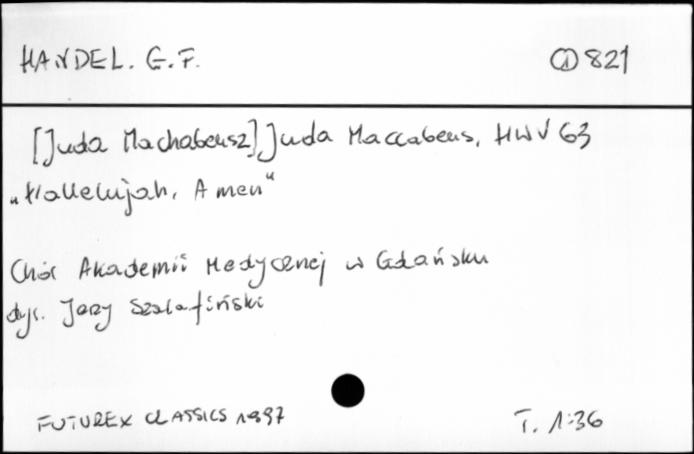 HANDEL. G.F.
CD 821
[Juda Machabeusz] Juda Maccabeus, HWV 63
„Hallelujah, Amen"
Chór Akademii Medycznej w Gdańsku
dyr. Jerzy Szalafiński
FUTUREX CLASSICS 1997
T. 1:36